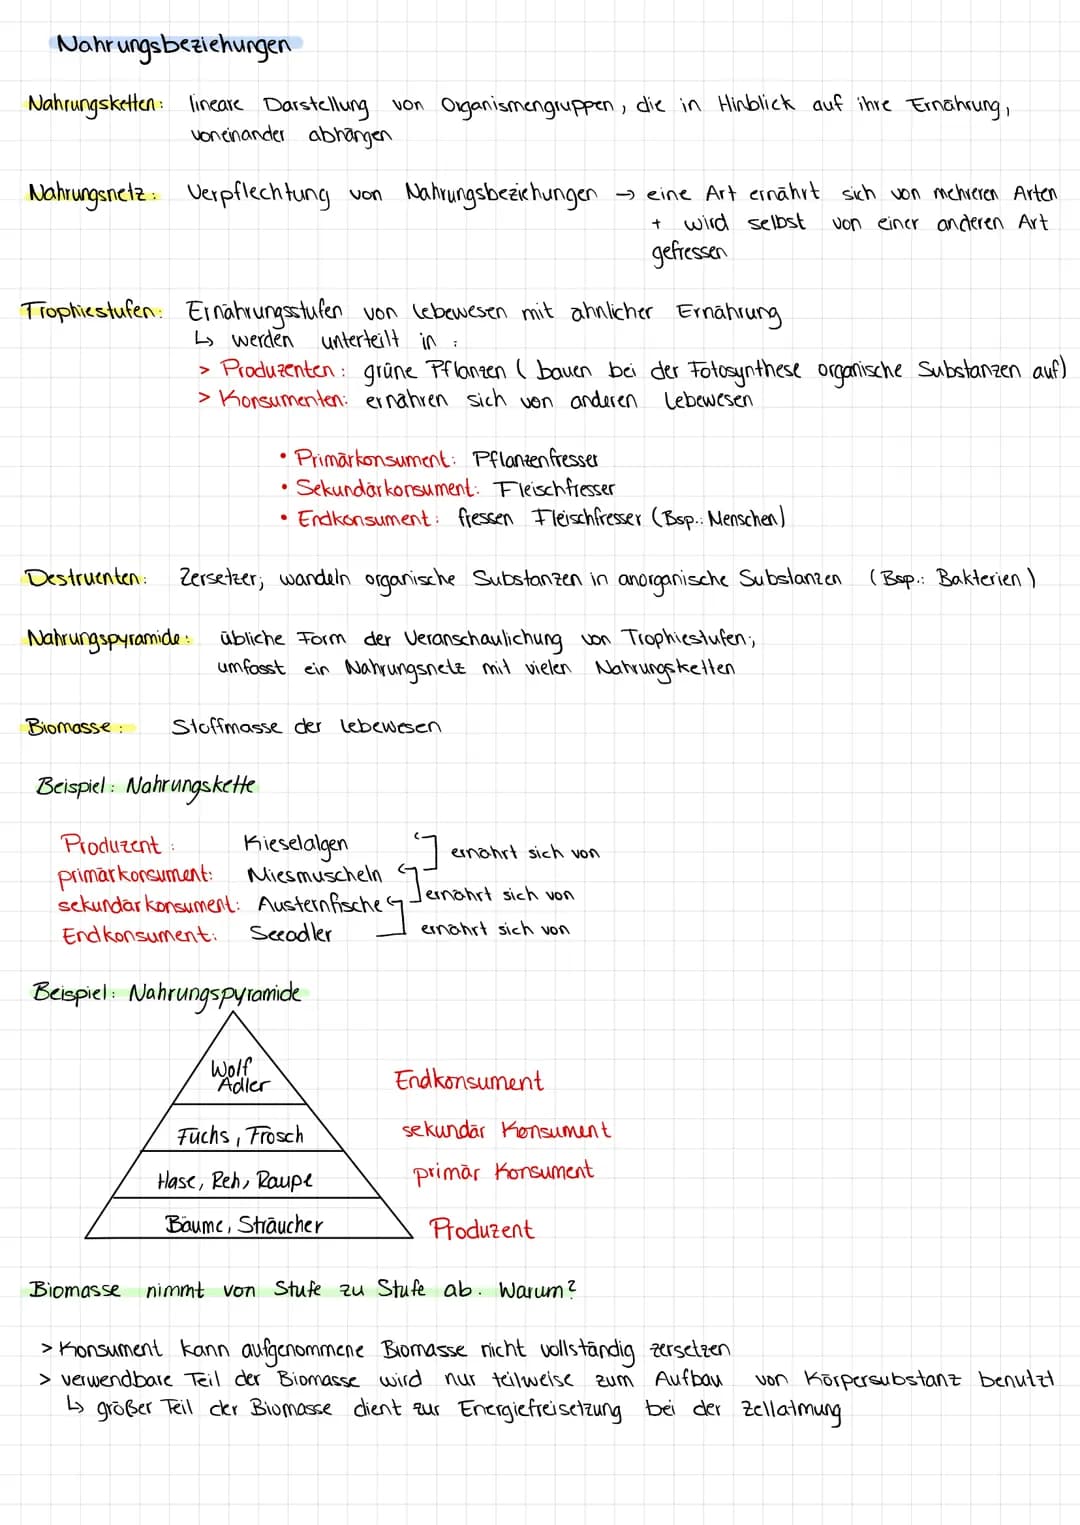 Nahrungsbeziehungen
Nahrungsketten: lineare Darstellung von Organismengruppen, die in Hinblick auf ihre Ernährung,
voneinander abhängen
Nahrungsnetz: Verpflechtung von Nahrungsbeziehungen → eine Art ernährt sich von mehreren Arten
+ wird selbst von einer anderen Art
gefressen
Trophiestufen: Ernährungsstufen von Lebewesen mit ähnlicher Ernährung
↳ werden unterteilt in:
> Produzenten: grüne Pflanzen (bauen bei der Fotosynthese organische Substanzen auf)
> Konsumenten: ernähren sich von anderen Lebewesen
• Primärkonsument: Pflanzenfresser
• Sekundärkonsument: Fleischfresser
• Endkonsument: fressen Fleischfresser (Bsp.: Menschen)
Destruenten: Zersetzer; wandeln organische Substanzen in anorganische Substanzen (Bsp.: Bakterien)
Nahrungspyramide: übliche Form der Veranschaulichung von Trophiestufen;
umfasst ein Nahrungsnetz mit vielen Nahrungsketten
Biomasse: Stoffmasse der Lebewesen
Beispiel: Nahrungskette
Produzent: Kieselalgen
ernährt sich von
primärkonsument: Miesmuscheln
ernährt sich von
sekundärkonsument: Austernfische
ernährt sich von
Endkonsument: Seeadler
Beispiel: Nahrungspyramide
Wolf
Adler
Endkonsument
Fuchs, Frosch
sekundär Konsument
Hase, Reh, Raupe
primär Konsument
Bäume, Sträucher
Produzent
Biomasse nimmt von Stufe zu Stufe ab. Warum?
> Konsument kann aufgenommene Biomasse nicht vollständig zersetzen
> verwendbare Teil der Biomasse wird nur teilweise zum Aufbau von Körpersubstanz benutzt
↳ großer Teil der Biomasse dient zur Energiefreisetzung bei der Zellatmung